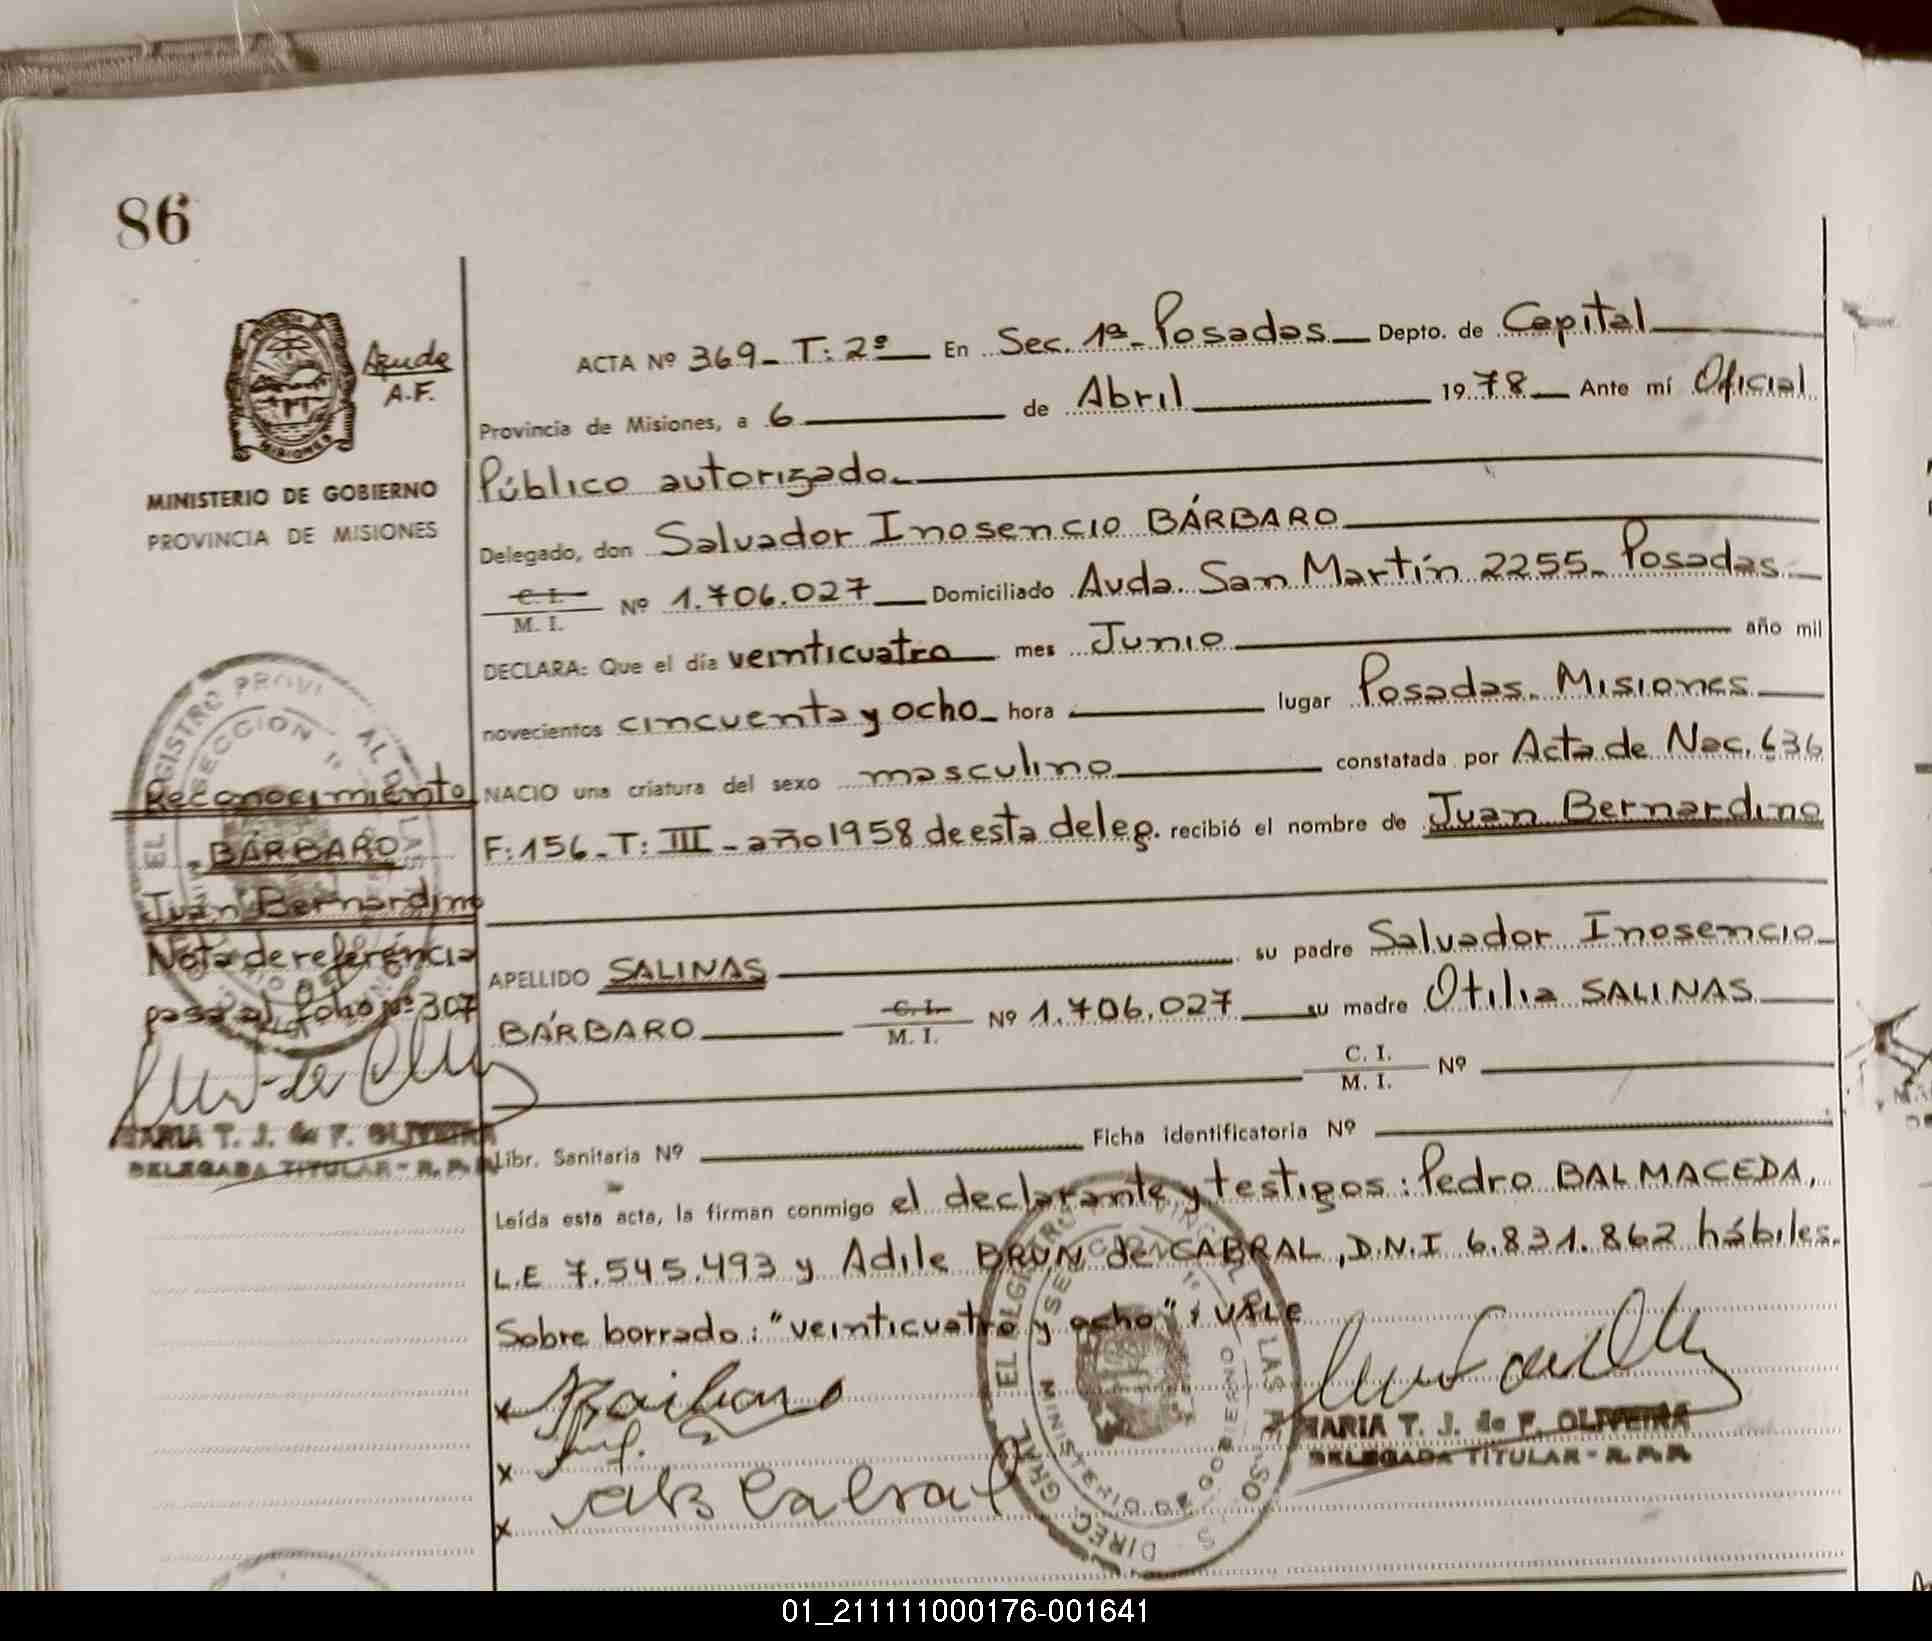 86
Azude
A.F.
MINISTERIO DE GOBIERNO
PROVINCIA DE MISIONES
ACTA Nº 369_ T: 2º En Sec. 1ª_ Posadas Depto. de Capital
Provincia de Misiones, a 6 de Abril 1978 Ante mí Oficial
Público autorizado
Delegado, don Salvador Inosencio BÁRBARO
C. I.
M. I. Nº 1.706.027 Domiciliado Avda. San Martín 2255_ Posadas
DECLARA: Que el día veinticuatro mes Junio año mil
novecientos cincuenta y ocho hora lugar Posadas. Misiones
NACIO una criatura del sexo masculino constatada por Acta de Nac. 636
F: 156_ T: III _ año 1958 de esta deleg. recibió el nombre de Juan Bernardino
APELLIDO SALINAS su padre Salvador Inosencio
BÁRBARO C. I.
M. I. Nº 1.706.027 su madre Otilia SALINAS
C. I.
M. I. Nº
Libr. Sanitaria Nº Ficha identificatoria Nº
Leída esta acta, la firman conmigo el declarante y testigos: Pedro BALMACEDA,
L.E 7.545.493 y Adile BRUN de CABRAL, D.N.I 6.831.862 hábiles.
Sobre borrado: "veinticuatro y ocho"; VALE
Reconocimiento
BÁRBARO
Juan Bernardino
Nota de referencia
pasa al folio nº 307
MARIA T. J. de F. OLIVEIRA
DELEGADA TITULAR - R.P.P.
x
x
x Cabral
MARIA T. J. de F. OLIVEIRA
DELEGADA TITULAR - R.P.P.
01_211111000176-001641